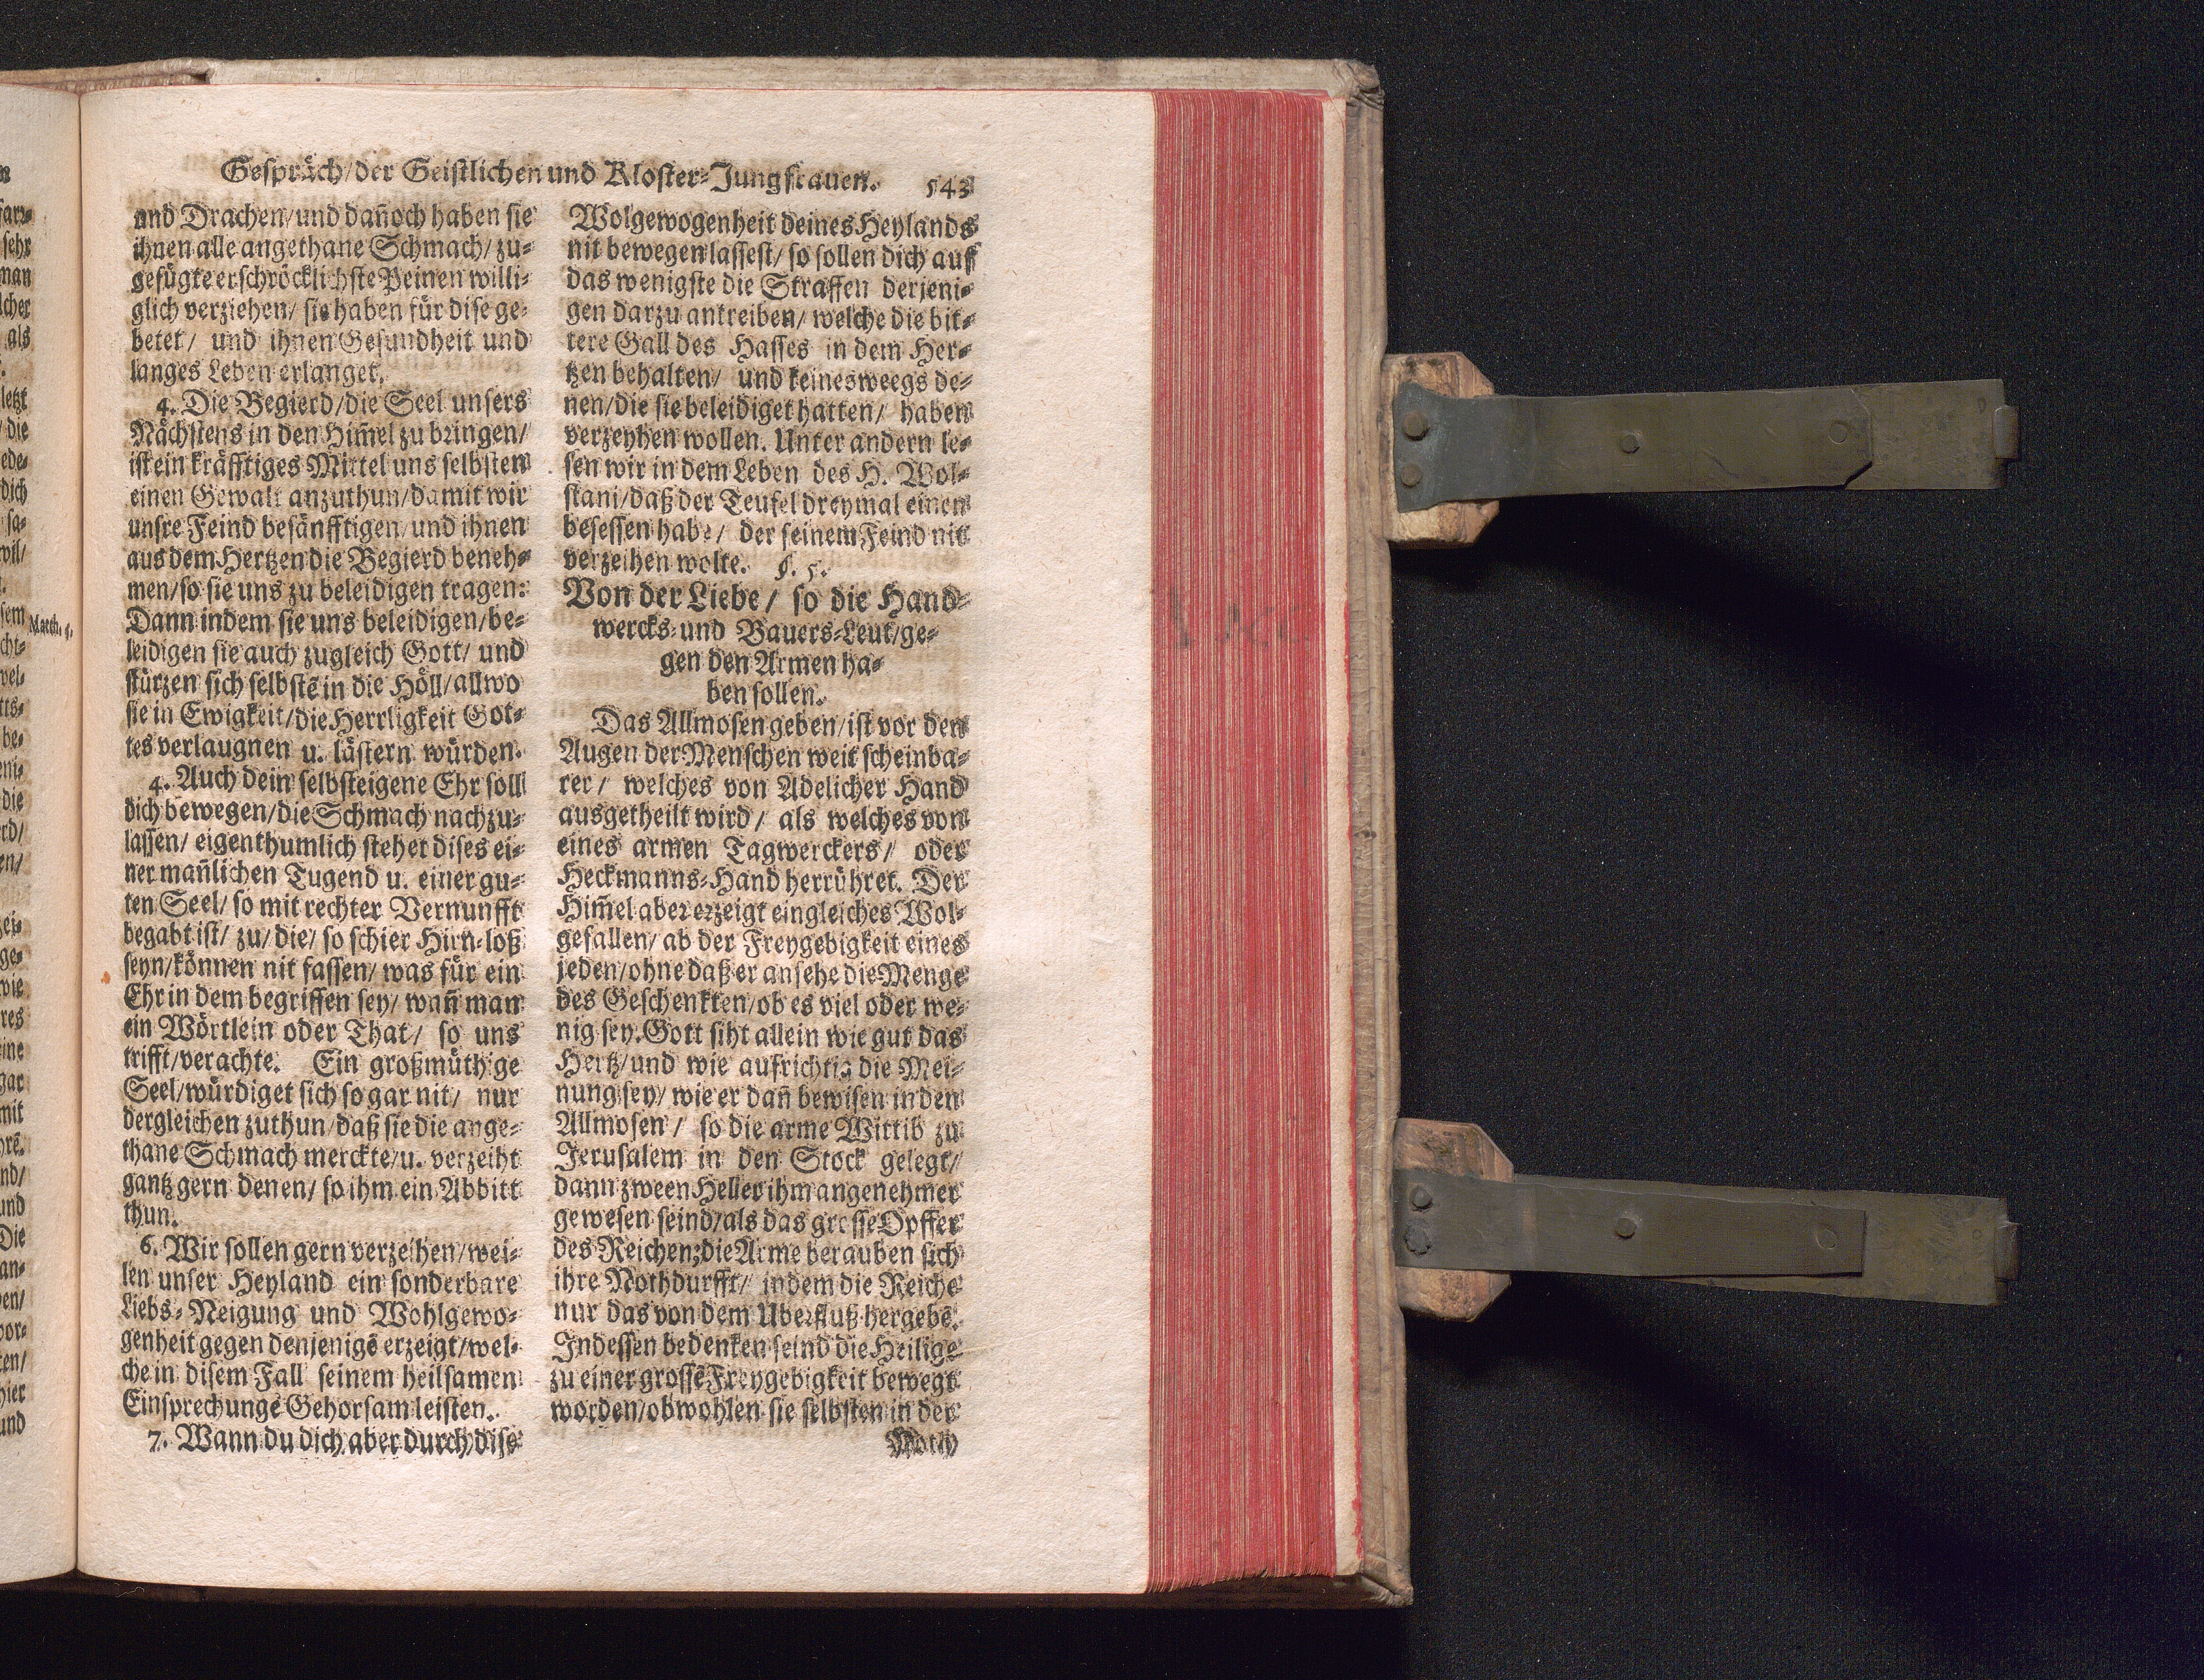 Gespräch/ der Geistlichen und Kloster-Jungfrauen. 543
und Drachen/ und dañoch haben sie
ihnen alle angethane Schmach/ zu-
gefügte erschröcklichste Peinen willi-
glich verziehen/ sie haben für dise ge-
betet/ und ihnen Gesundheit und
langes Leben erlanget.
4. Die Begierd/ die Seel unsers
Nächstens in den Him̃el zu bringen/
ist ein kräfftiges Mittel uns selbsten
einen Gewalt anzuthun/ damit wir
unsre Feind besänfftigen/ und ihnen
aus dem Hertzen die Begierd beneh-
men/ so sie uns zu beleidigen tragen:
Dann indem sie uns beleidigen/ be-
leidigen sie auch zugleich Gott/ und
stürzen sich selbstē in die Höll/ allwo
sie in Ewigkeit/ die Herrligkeit Got-
tes verlaugnen u. lästern würden.
4. Auch dein selbsteigene Ehr soll
dich bewegen/ die Schmach nachzu-
lassen/ eigenthumlich stehet dises ei-
ner mañlichen Tugend u. einer gu-
ten Seel/ so mit rechter Vernunfft
begabt ist/ zu/ die/ so schier Hirn-loß
seyn/ können nit fassen/ was für ein
Ehr in dem begriffen sey/ wañ man
ein Wörtlein oder That/ so uns
trifft/ verachte. Ein großmüthige
Seel/ würdiget sich so gar nit/ nur
dergleichen zuthun/ daß sie die ange-
thane Schmach merckte/ u. verzeiht
gantz gern denen/ so ihm ein Abbitt
thun.
6. Wir sollen gern verzeihen/ wei-
len unser Heyland ein sonderbare
Liebs-Neigung und Wohlgewo-
genheit gegen denjenigē erzeigt/ wel-
che in disem Fall seinem heilsamen
Einsprechungē Gehorsam leisten.
7. Wann du dich aber durch dise
Wolgewogenheit deines Heylands
nit bewegen lassest/ so sollen dich auff
das wenigste die Straffen derjeni-
gen darzu antreiben/ welche die bit-
tere Gall des Hasses in dem Her-
tzen behalten/ und keinesweegs de-
nen/ die sie beleidiget hatten/ haben
verzeyhen wollen. Unter andern le-
sen wir in dem Leben des H. Wol-
stani/ daß der Teufel dreymal einen
besessen habe/ der seinem Feind nit
verzeihen wolte. §. 5.
Von der Liebe/ so die Hand-
wercks- und Bauers-Leut/ ge-
gen den Armen ha-
ben sollen.
Das Allmosen geben/ ist vor den
Augen der Menschen weit scheinba-
rer/ welches von Adelicher Hand
ausgetheilt wird/ als welches von
eines armen Tagwerckers/ oder
Heckmanns-Hand herrühret. Der
Him̃el aber erzeigt ein gleiches Wol-
gefallen/ ab der Freygebigkeit eines
jeden/ ohne daß er ansehe die Menge
des Geschenkten/ ob es viel oder we-
nig sey. Gott siht allein wie gut das
Hertz/ und wie aufrichtig die Mei-
nung sey/ wie er dañ bewisen in den
Allmosen/ so die arme Wittib zu
Jerusalem in den Stock gelegt/
dann zween Heller ihm angenehmer
gewesen seind/ als das grosse Opffer
des Reichen; die Arme berauben sich
ihre Nothdurfft/ indem die Reiche
nur das von dem Uberfluß hergebē.
Indessen bedenken seind die Heilige
zu einer grossē Freygebigkeit bewegt
worden/ obwohlen sie selbsten in der
Noth
Matth.